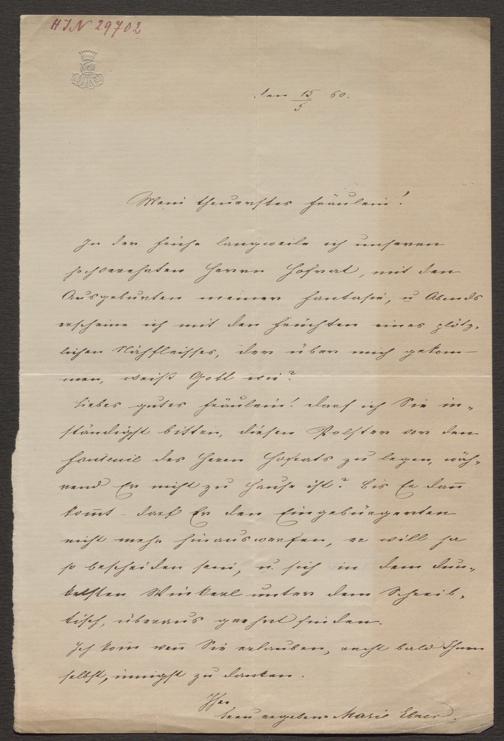 HIN 29702
den 15/5 60.
Mein theuerstes Fräulein!
In der Frühe langweile ich unseren
hochverehrten Herrn Hofrat, mit den
Ausgeburten meiner Fantasie, u Abends
erscheine ich mit den Früchten eines plötz-
lichen Nähfleisses, der über mich gekom-
men, weiß Gott wie?
Liebes gutes Fräulein! darf ich Sie in-
ständigst bitten, diesen Polster vor den
Fauteuil des Herrn Hofrats zu legen, wäh-
rend Er nicht zu Hause ist? bis Er dann
komt - darf Er den Eingebürgerten
nicht mehr hinauswerfen, er will ja
so bescheiden sein, u sich in dem dun-
kelsten Winkerl unter dem Schreib-
tisch, überaus geehrt finden.
Ich kom wen Sie erlauben, recht bald Ihnen
selbst, innigst zu danken.
Ihre
treu ergebene Marie Ebner.